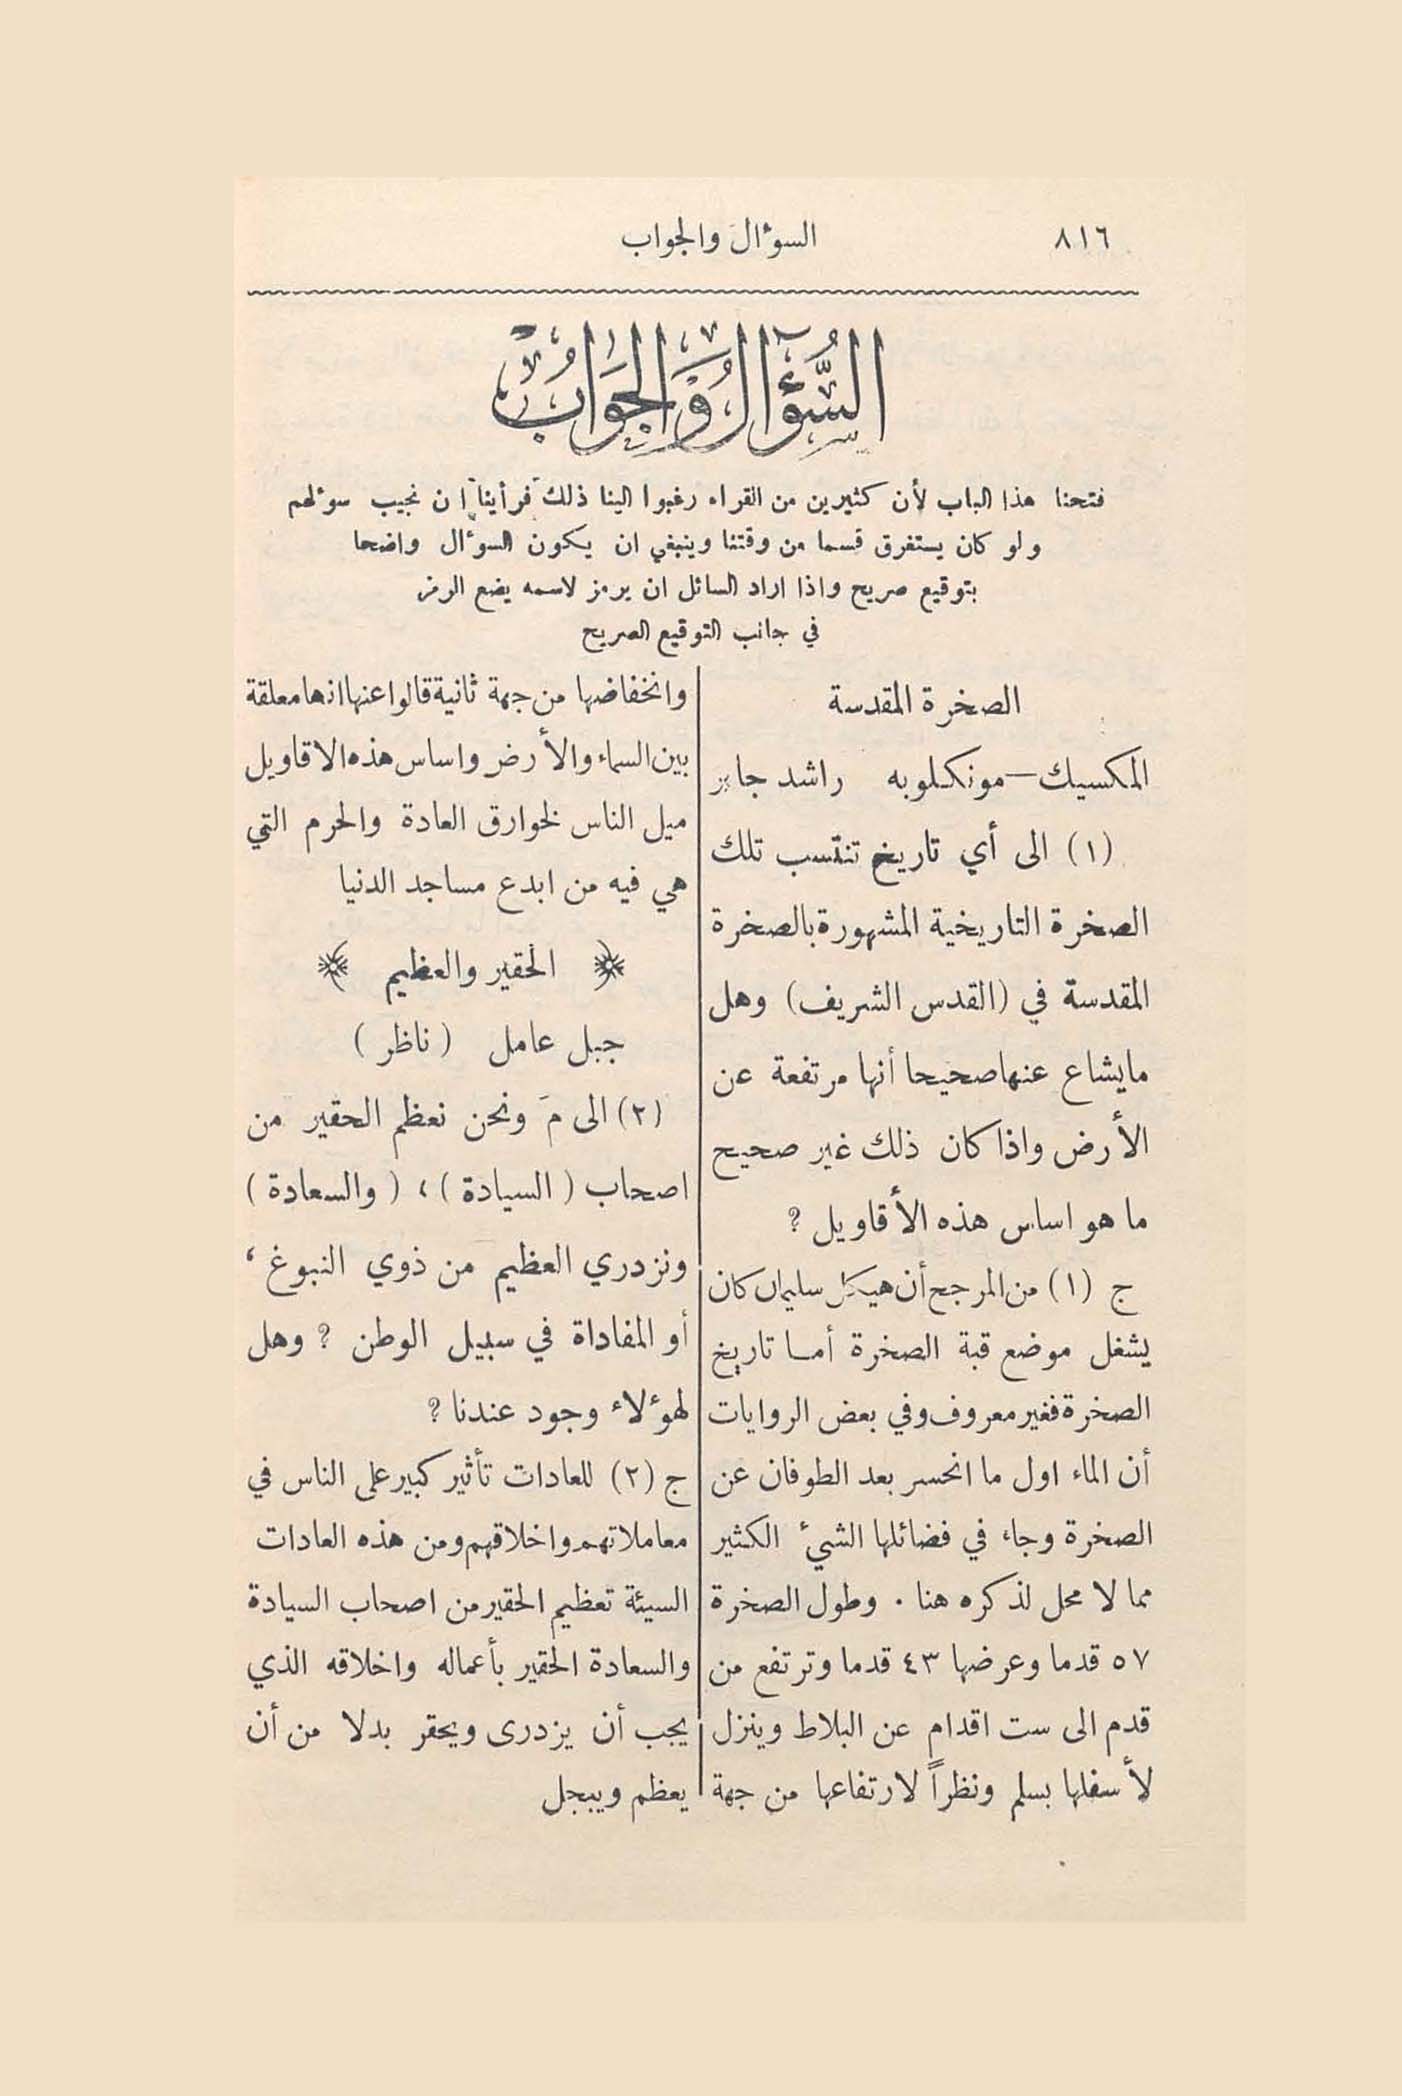 ٨١٦
السوءال والجواب
السُّؤَالُ وَالجَوَابُ
فتحنا هذا الباب لأن كثيرين من القراء رغبوا الينا ذلك فرأينا ان نجيب سوءلهم
ولو كان يستغرق قسما من وقتنا وينبغي ان يكون السوءال واضحا
بتوقيع صريح واذا اراد السائل ان يرمز لاسمه يضع الرمز
في جانب التوقيع الصريح
الصخرة المقدسة
المكسيك — مونكلوبه راشد جابر
(١) الى أي تاريخ تنتسب تلك
الصخرة التاريخية المشهورة بالصخرة
المقدسة في (القدس الشريف) وهل
مايشاع عنها صحيحا أنها مرتفعة عن
الأرض واذا كان ذلك غير صحيح
ما هو اساس هذه الأقاويل ؟
ج (١) من المرجح أن هيكل سليمان كان
يشغل موضع قبة الصخرة أما تاريخ
الصخرة فغير معروف وفي بعض الروايات
أن الماء اول ما انحسر بعد الطوفان عن
الصخرة وجاء في فضائلها الشيء الكثير
مما لا محل لذكره هنا . وطول الصخرة
٥٧ قدما وعرضها ٤٣ قدما وترتفع من
قدم الى ست اقدام عن البلاط وينزل
لأسفلها بسلم ونظراً لارتفاعها من جهة
وانخفاضها من جهة ثانية قالوا عنها انها معلقة
بين السماء والأرض واساس هذه الاقاويل
ميل الناس لخوارق العادة والحرم التي
هي فيه من ابدع مساجد الدنيا
الحقير والعظيم
جبل عامل (ناظر)
(٢) الى مَ ونحن نعظم الحقير من
اصحاب (السيادة) ، (والسعادة)
ونزدري العظيم من ذوي النبوغ ،
أو المفاداة في سبيل الوطن ؟ وهل
لهوءلاء وجود عندنا ؟
ج (٢) للعادات تأثير كبير على الناس في
معاملاتهم واخلاقهم ومن هذه العادات
السيئة تعظيم الحقير من اصحاب السيادة
والسعادة الحقير بأعماله واخلاقه الذي
يجب أن يزدرى ويحقر بدلا من أن
يعظم ويبجل